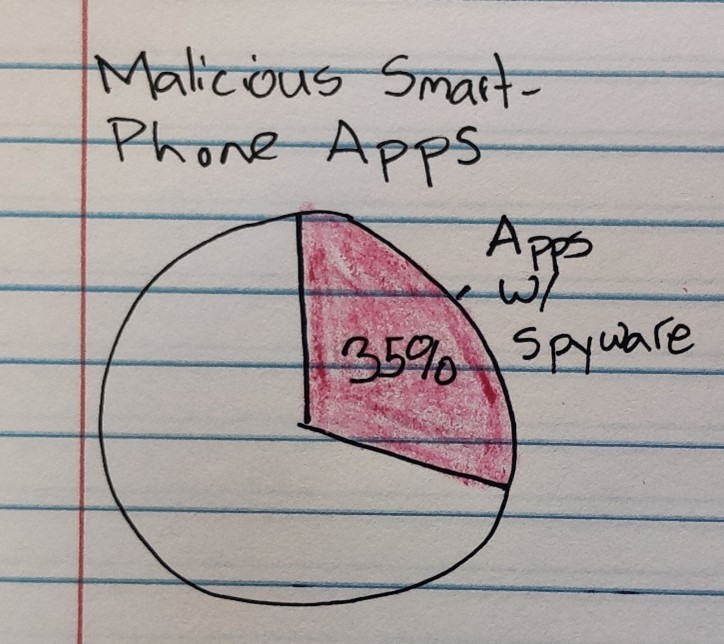 Malicious Smart-
Phone Apps
Apps
w/
Spyware
35%